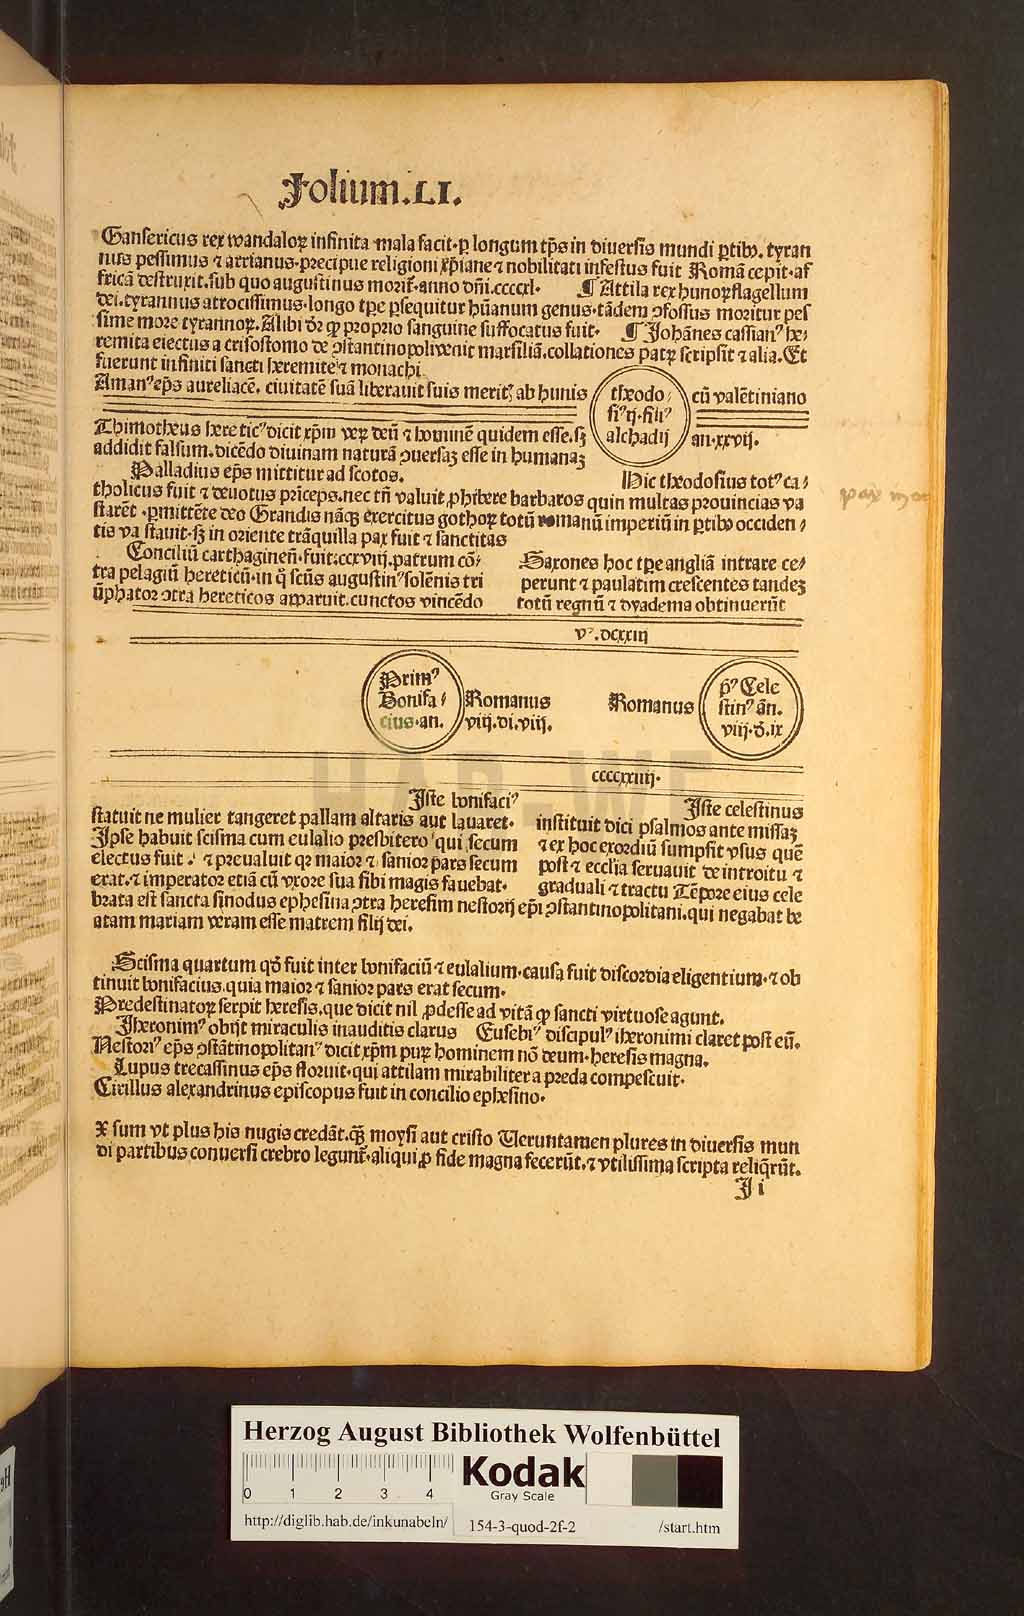 Folium.LI.
Gansericus rex wandaloꝝ infinita mala facit·ꝑ longum tꝑs in diuersis mundi ꝑtibꝰ. tyran
nus pessimus ⁊ arrianus·precipue religioni xp̄iane ⁊ nobilitati infestus fuit Romā cepit·af
fricā destruxit.sub quo augustinus morit᷑·anno dn̄i.ccccxl· ¶ Attila rex hunoꝝ flagellum
dei.tyrannus atrocissimus·longo tꝑe ꝑsequitur hūanum genus·tādem ꝯfossus moritur pes
sime more tyrannoꝝ.Alibi dr̄ ꝙ proprio sanguine suffocatus fuit· ¶ Johānes cassianꝰ he/
remita eiectus a crisostomo de ꝯstantinopoli venit marsiliā.collationes patꝝ scripsit ⁊ alia.Et
fuerunt infiniti sancti heremite ⁊ monachi
Amanꝰ ep̄s aureliacē. ciuitatē suā liberauit suis merit᷑ ab hunis
theodo/
siꝰ ij·filiꝰ
alchadij
cū valētiniano
an·xxvij.
Thimotheus hereticꝰ dicit xp̄m veꝝ deū ⁊ hominē quidem esse.sꝫ
addidit falsum.dicēdo diuinam naturā ꝯuersaꝫ esse in humanaꝫ
Palladius ep̄s mittitur ad scotos.
Hic theodosius totꝰ ca/
tholicus fuit ⁊ deuotus prīceps.nec tn̄ valuit ꝓhibere barbaros quin multas prouincias va
starēt ·ꝑmittēte deo Grandis nāqꝫ exercitus gothoꝝ totū romanū imperiū in ꝑtibꝰ occiden/
tis va stauit·sꝫ in oriente trāquilla pax fuit ⁊ sanctitas
pax
Conciliū carthaginen̄·fuit:ccxviij.patrum cō/
tra pelagiū hereticū·in q̊ scūs augustinꝰ solēnis tri
ūphator ꝯtra hereticos apparuit.cunctos vincēdo
Saxones hoc tꝑe angliā intrare ce/
perunt ⁊ paulatim crescentes tandeꝫ
totū regnū ⁊ dyadema obtinuerūt
vꝰ.dcxxiij
Primꝰ
Bonifa/
cius·an.
Romanus
viij.di.viij.
Romanus
p̄ꝰ Cele
stinꝰ ān.
viij·d̄.ix
ccccxxiiij·
Iste bonifaciꝰ
statuit ne mulier tangeret pallam altaris aut lauaret·
Ipse habuit scisma cum eulalio presbitero qui secum
electus fuit · ⁊ preualuit qꝛ maior ⁊ sanior pars secum
erat.⁊ imperator etiā cū vxore sua sibi magis fauebat·
Iste celestinus
instituit dici psalmos ante missaꝫ
⁊ ex hoc exordiū sumpsit vsus quē
post ⁊ ecclīa seruauit de introitu ⁊
graduali ⁊ tractu Tēpore eius cele
brata est sancta sinodus ephesina ꝯtra heresim nestorij ep̄i ꝯstantinopolitani.qui negabat be
atam mariam veram esse matrem filij dei.
Scisma quartum qd̄ fuit inter bonifaciū ⁊ eulalium·causa fuit discordia eligentium·⁊ ob
tinuit bonifacius.quia maior ⁊ sanior pars erat secum·
Predestinatoꝝ serpit heresis.que dicit nil ꝓdesse ad vitā ꝙ sancti virtuose agunt.
Iheronimꝰ obijt miraculis inauditis clarus Eusebiꝰ discipulꝰ iheronimi claret post eū.
Nestoriꝰ ep̄s ꝯstātinopolitanꝰ dicit xp̄m puꝝ hominem nō deum·heresis magna.
Lupus trecassinus ep̄s floruit·qui attilam mirabiliter a preda compescuit·
Cirillus alexandrinus episcopus fuit in concilio ephesino·
X sum vt plus his nugis credāt.qꝫ moysi aut cristo Veruntamen plures in diuersis mun
di partibus conuersi crebro legunt᷑·aliqui ꝓ fide magna fecerūt.⁊ vtilissima scripta reliq̄rūt.
I i
HAB_WF
Herzog August Bibliothek Wolfenbüttel
0 1 2 3 4
Kodak
Gray Scale
http://diglib.hab.de/inkunabeln/ 154-3-quod-2f-2 /start.htm